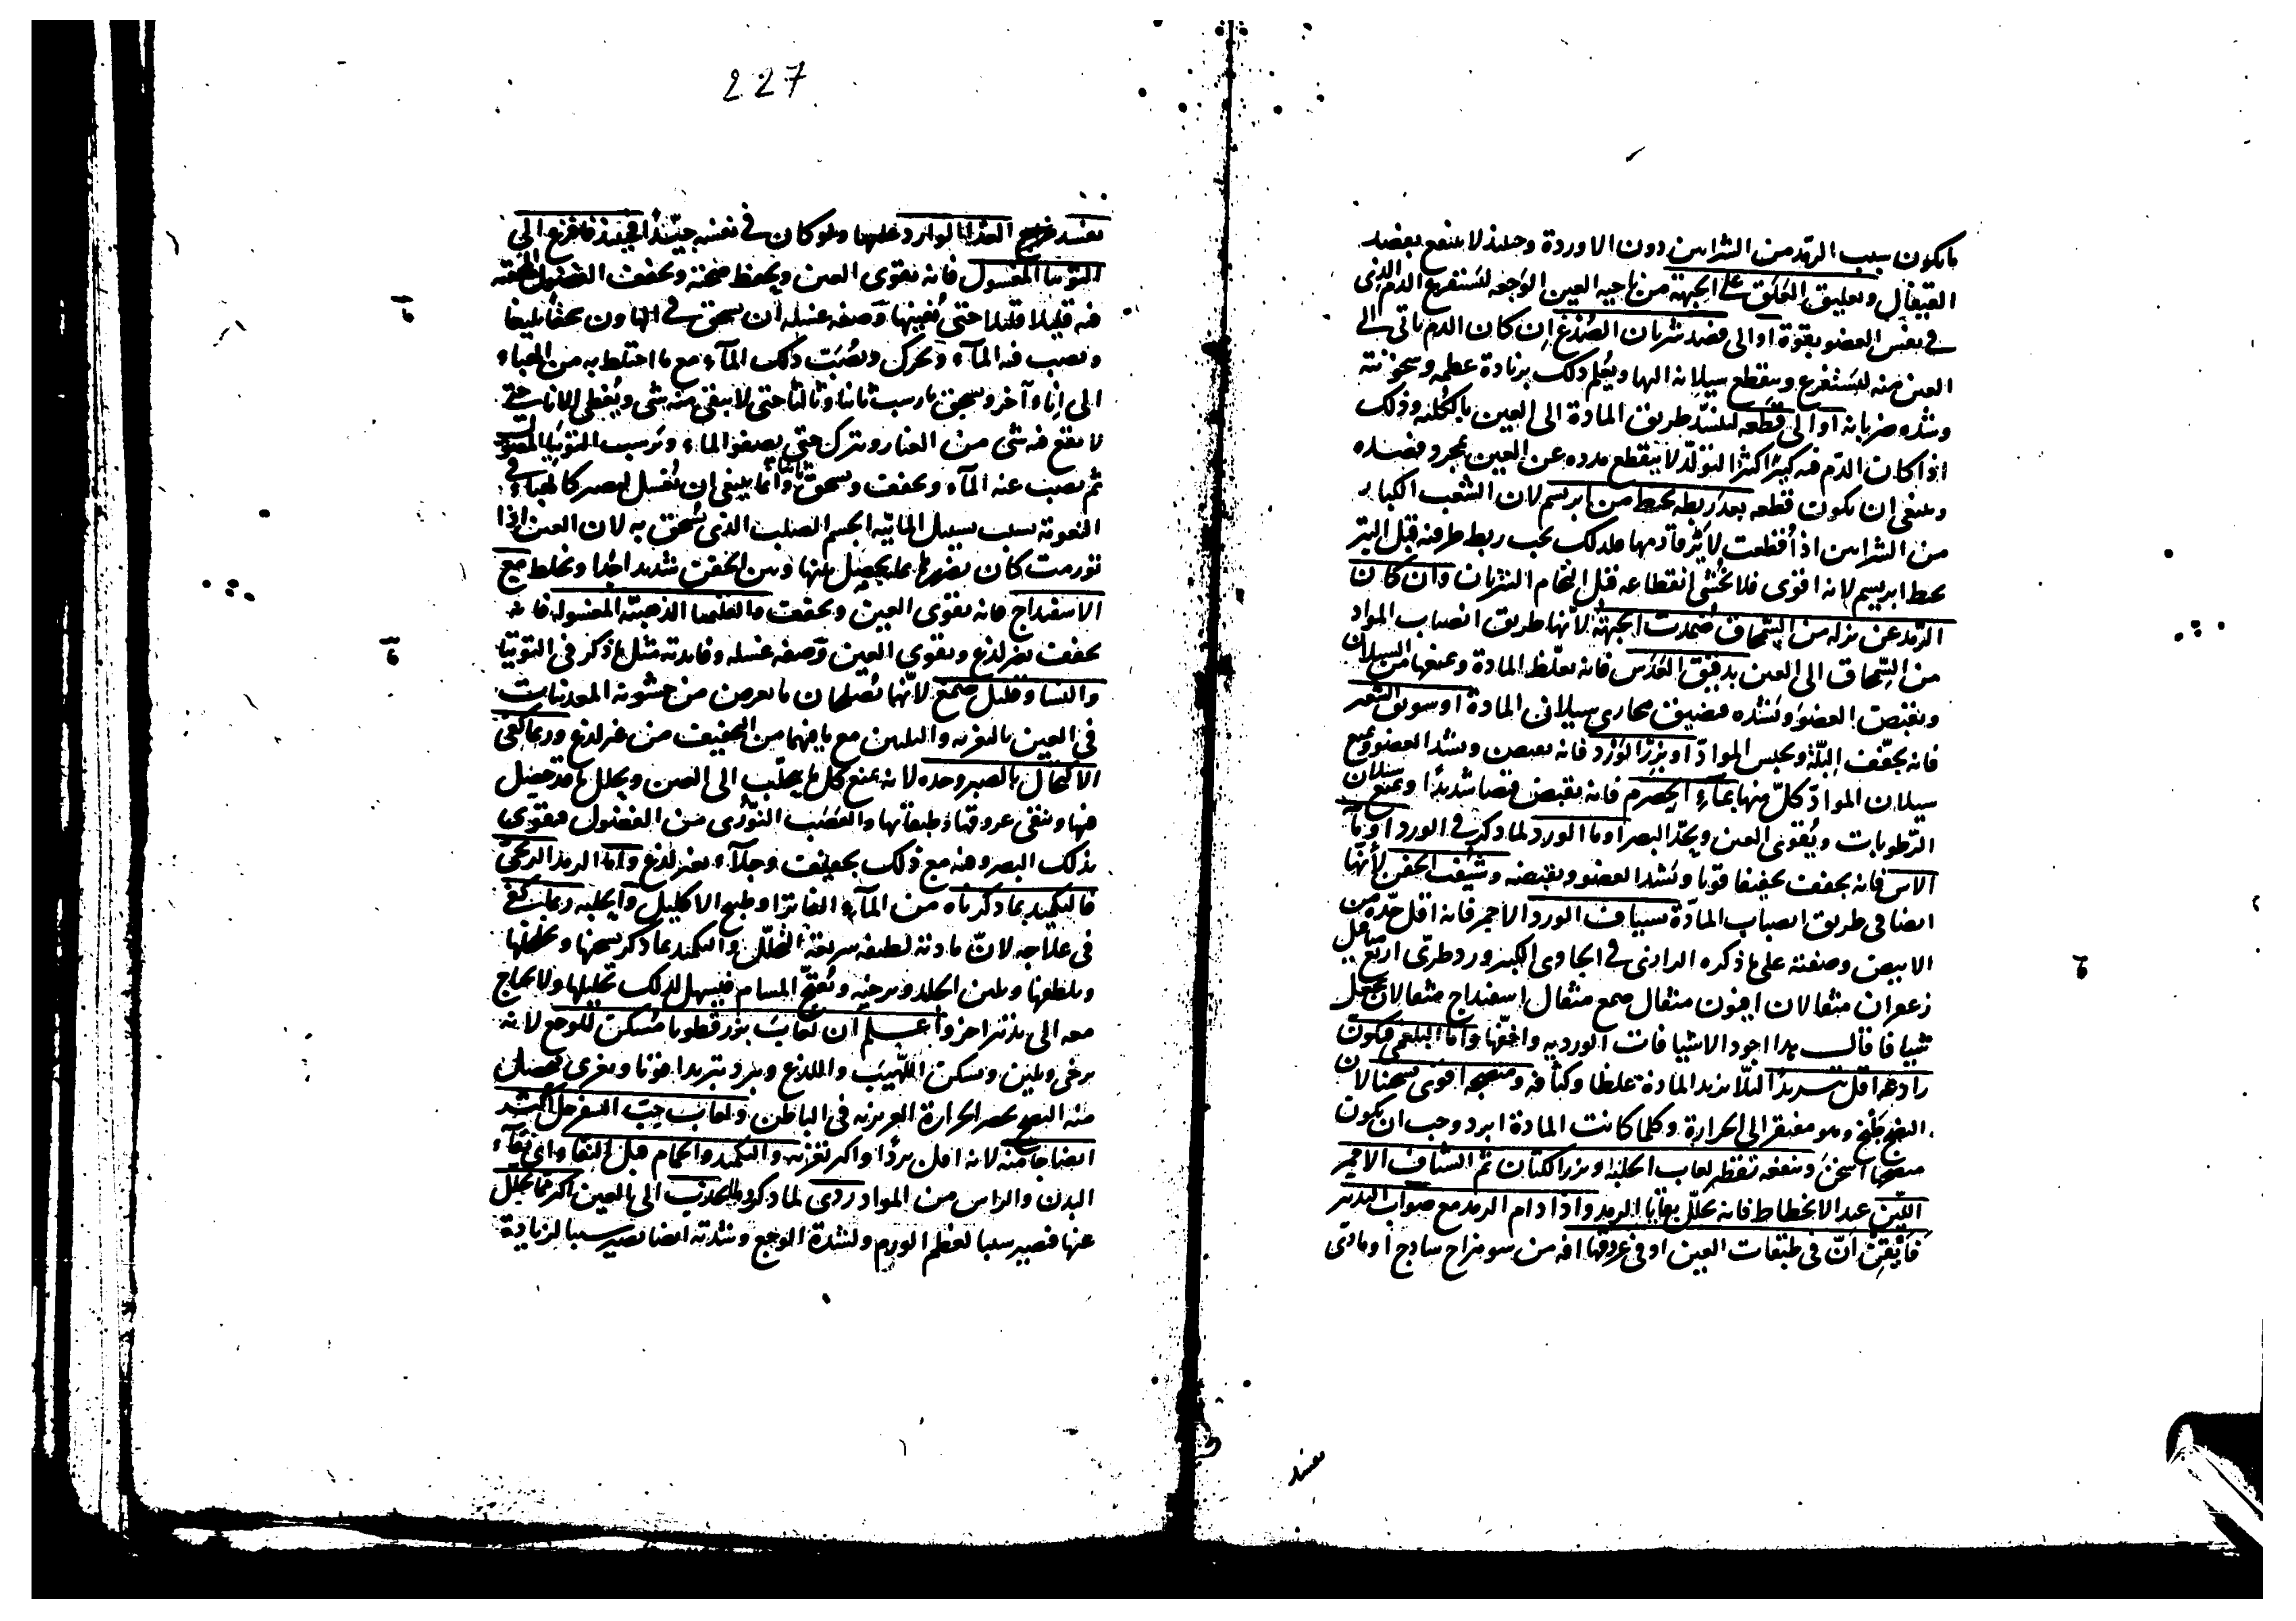 ما يكون سبب الرمد من الشرايين دون الاوردة وحينئذ لا ينفع بفصد
القيفال وتعليق العلق على الجبهة من ناحيه العين الوجعه لتستفرغ الدم الذى
في نفس العضو بقوة او الى فصد شريان الصدغ ان كان الدم ياتى الى
العين منه ليستفرغ وينقطع سيلانه اليها ويعلم ذلك بزيادة عظمه وسخونته
وشده ضربانه او الى قطعه لينسد طريق المادة الى العين بالكليه وذلك
اذا كان الدم فيه كثيرا كثير التولد لا ينقطع مدده عن العين بمجرد فصده
وينبغى ان يكون قطعه بعد ربطه بخيط من ابريسم لان الشعب الكبار
من الشرايين اذا قطعت لا يرقا دمها فلذلك يجب ربط طرفيه قبل البتر
بخيط ابريسم لانه اقوى فلا يخشى انقطاعه قبل التحام الشريان وان كان
الرمد عن نزله من السمحاق ضمدت الجبهة لانها طريق انصباب المواد
من السمحاق الى العين بدقيق العدس فانه يغلظ المادة ويمنعها من السيلان
ويقبض العضو ويشده فيضيق مجارى سيلان المادة او سويق الشعير
فانه يجفف البلة ويحبس المواد او بزر الورد فانه يقبض ويشد العضو ويمنع
سيلان المواد كل منها بماء الحصرم فانه يقبض قبضا شديدا ويمنع سيلان
الرطوبات ويقوى العين ويحد البصر او ماء الورد لما ذكر في الورد او ماء
الاس فانه يجفف تجفيفا قويا ويشد العضو ويقبضه وشيفت الجفن لانها
ايضا في طريق انصباب المادة بشياف الورد الاحمر فانه اقل حدة من
الابيض وصفته على ما ذكره الرازى في الحاوى الكبير ورد طرى اربع مثاقيل
زعفران مثقالان افيون مثقال صمغ مثقال اسفيداج مثقالان يجعل
شيافا قال هذا اجود الاشيافات الورديه واخفها واما البلغمى فيكون
رادعه اقل تبريدا لئلا يزيد المادة غلظا وكثافه ومنضجه اقوى تسخينا لان
النضج طبخ وهو مفتقر الى الحرارة وكلما كانت المادة ابرد وجب ان يكون
منضجها اسخن وينفعه تقطير لعاب الحلبة وبزر الكتان ثم الشياف الاحمر
اللين عند الانحطاط فانه يحلل بقايا الرمد واذا دام الرمد مع صواب التدبير
فايقن ان في طبقات العين او في عروقها افه من سو مزاج ساذج او مادى
يفسد
227
يفسد مزاج الغذا الوارد عليها ولو كان في نفسه جيدا فحينئذ فافزع الى
التوتيا المغسول فانه يقوى العين ويحفظ صحته ويجفف الفضول المحتقنه
فيه قليلا قليلا حتى تفنيها وصفه غسله ان يسحق في الهاون سحقا بليغا
ويصب فيه الماء ويحرك ويصب ذلك الماء مع ما اختلط به من الهباء
الى اناء آخر ويسحق ما رسب ثانيا وثالثا حتى لا يبقى منه شى ويغطى الاناء حتى
لا يقع فيه شى من الغبار ويترك حتى يصفو الماء ويرسب التوتيا المصول
ثم يصب عنه الماء ويجفف ويسحق ثانيا وانما ينبغى ان يغسل ليصير كالهباء في
النعومة بسبب تسييل المائيه الجسم الصلب الذى يسحق به لان العين اذا
تورمت كان تضررها بما يحصل بينها وبين الجفن شديدا جدا ويخلط مع
الاسفيداج فانه يقوى العين ويجفف والقليميا الذهبيه المغسوله فانه
يجفف بغير لذع ويقوى العين وصفه غسله وفايدته مثل ما ذكر في التوتيا
والنشا وقليل صمغ لانها يصلحان ما يعرض من خشونه المعدنيات
في العين بالتغريه والتليين مع ما فيهما من التجفيف من غير لذع وربما كفى
الاكتحال بالصبر وحده لانه يمنع كل ما يتحلب الى العين ويحلل ما قد حصل
فيها وينقى عروقها وطبقاتها والعصب النورى من الفضول فيقوى
بذلك البصر وفيه مع ذلك تجفيف وجلاء بغير لذع واما الرمد الريحى
فالتكميد بما ذكرناه من الماء الفاتر او طبيخ الاكليل والحلبه ربما كفى
في علاجه لان مادته لطيفه سريعة التحلل والتكميد بما ذكر يسخنها ويخلخلها
ويلطفها ويلين الجلد ويرخيه ويفتح المسام فيسهل لذلك تحليلها ولا يحتاج
معه الى تدبير اخر واعلم ان لعاب بزرقطونا مسكن للوجع لانه
يرخى ويلين ويسكن اللهيب واللذع ويبرد تبريدا قويا ويغرى فيحصل
منه النضج بحصر الحرارة الغريزيه في الباطن ولعاب حب السفرجل اشد
انضاجا منه لانه اقل بردا واكثر تغريه والتكميد والحمام قبل النقاء اى نقاء
البدن والراس من المواد ردى لما ذكر فانه يجذب الى العين اكثر مما يحلل
عنها فيصير سببا لعظم الورم ولشدة الوجع وشدته ايضا تصير سببا لزيادة